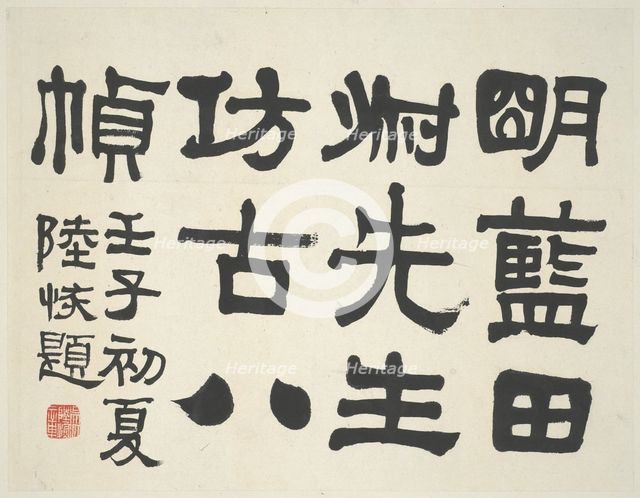 明藍田
叔先生
仿古八
幀
壬子初夏
陸恢題
Heritage
Heritage
Heritage
Heritage
Heritage
Heritage
Heritage